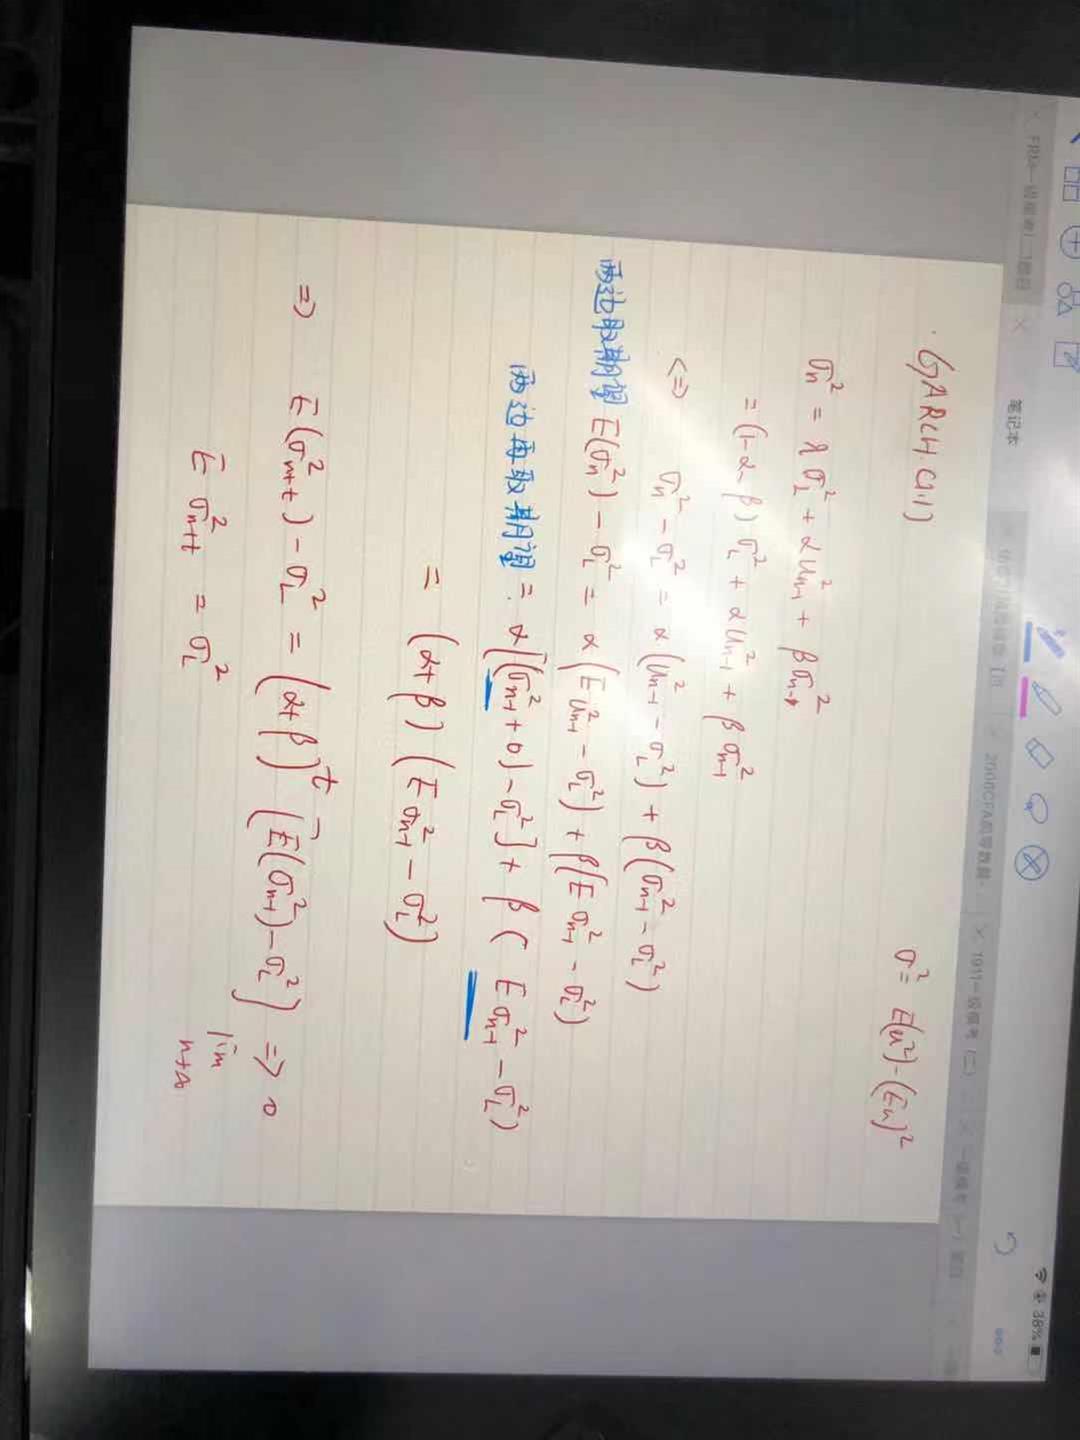 FRM一级
笔记本
2000CFA
1911一级模考（二）
38%
GARCH(1.1)
σ² = E(u²) - (Eu)²
σn² = γσL² + αun-1² + βσn-1²
= (1-α-β)σL² + αun-1² + βσn-1²
<=> σn² - σL² = α(un-1² - σL²) + β(σn-1² - σL²)
两边取期望 E(σn²) - σL² = α(Eun-1² - σL²) + β(Eσn-1² - σL²)
两边再取期望 = α[(σn-1² + 0) - σL²] + β(Eσn-1² - σL²)
= (α+β)(Eσn-1² - σL²)
=> E(σn+t²) - σL² = (α+β)^t [E(σn-1²) - σL²] => 0
lim
n→∞
Eσn+t² = σL²